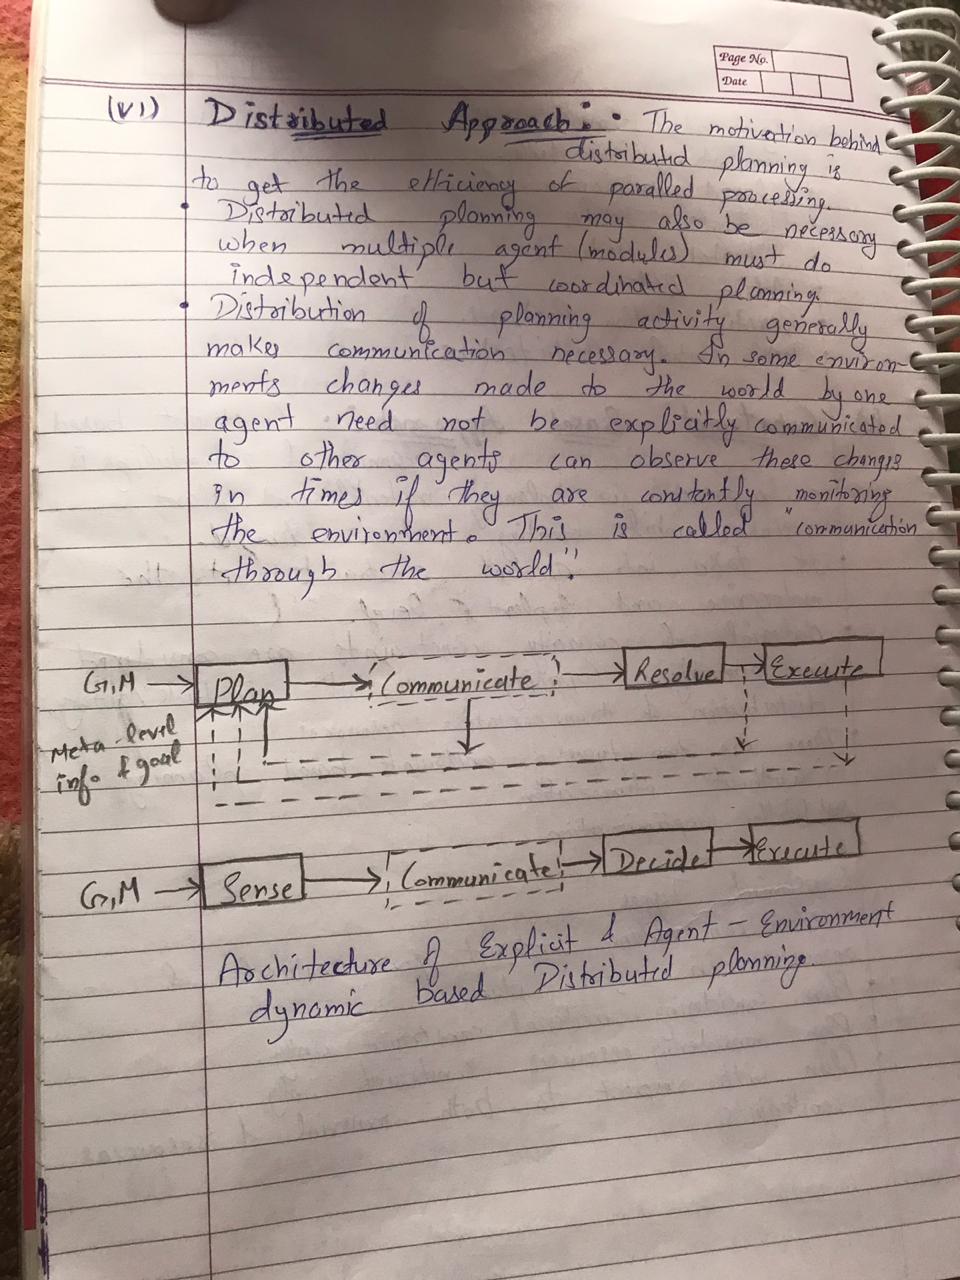 Page No.
Date
(vi) Distributed Approach :- The motivation behind
distributed planning is
to get the efficiency of paralled processing.
• Distributed planning may also be necessary
when multiple agent (modules) must do
independent but coordinated planning.
• Distribution of planning activity generally
makes communication necessary. In some environ-
ments changes made to the world by one
agent need not be explicitly communicated
to other agents can observe these changes
in times if they are constantly monitoring
the environment. This is called "communication
through the world".
G,M Plan Communicate Resolve Execute
Meta-level
info & goal
G,M Sense Communicate Decide Execute
Architecture of Explicit & Agent - Environment
dynamic based Distributed planning.